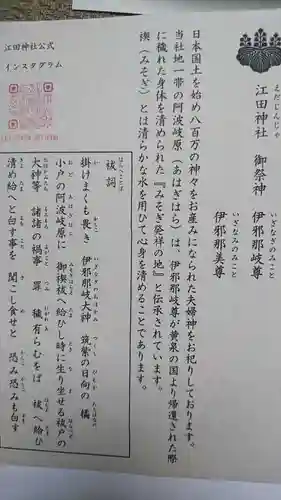 えだじんじゃ
江田神社　御祭神
いざなぎのみこと
伊邪那岐尊
いざなみのみこと
伊邪那美尊
日本国土を始め八百万の神々をお産みになられた夫婦神をお祀りしております。
当社地一帯の阿波岐原（あはぎはら）は、伊邪那岐尊が黄泉の国より帰還された際
に穢れた身体を清められた『みそぎ発祥の地』と伝承されています。
禊（みそぎ）とは清らかな水を用ひて心身を清めることであります。
江田神社公式
インスタグラム
はらへことば
祓詞
掛けまくも畏き　伊邪那岐大神　筑紫の日向の　橘
小戸の阿波岐原に　御禊祓へ給ひし時に生り坐せる祓戸の
大神等　諸諸の禍事　罪　穢有らむをば　祓へ給ひ
清め給へと白す事を　聞こし食せと　恐み恐みも白す